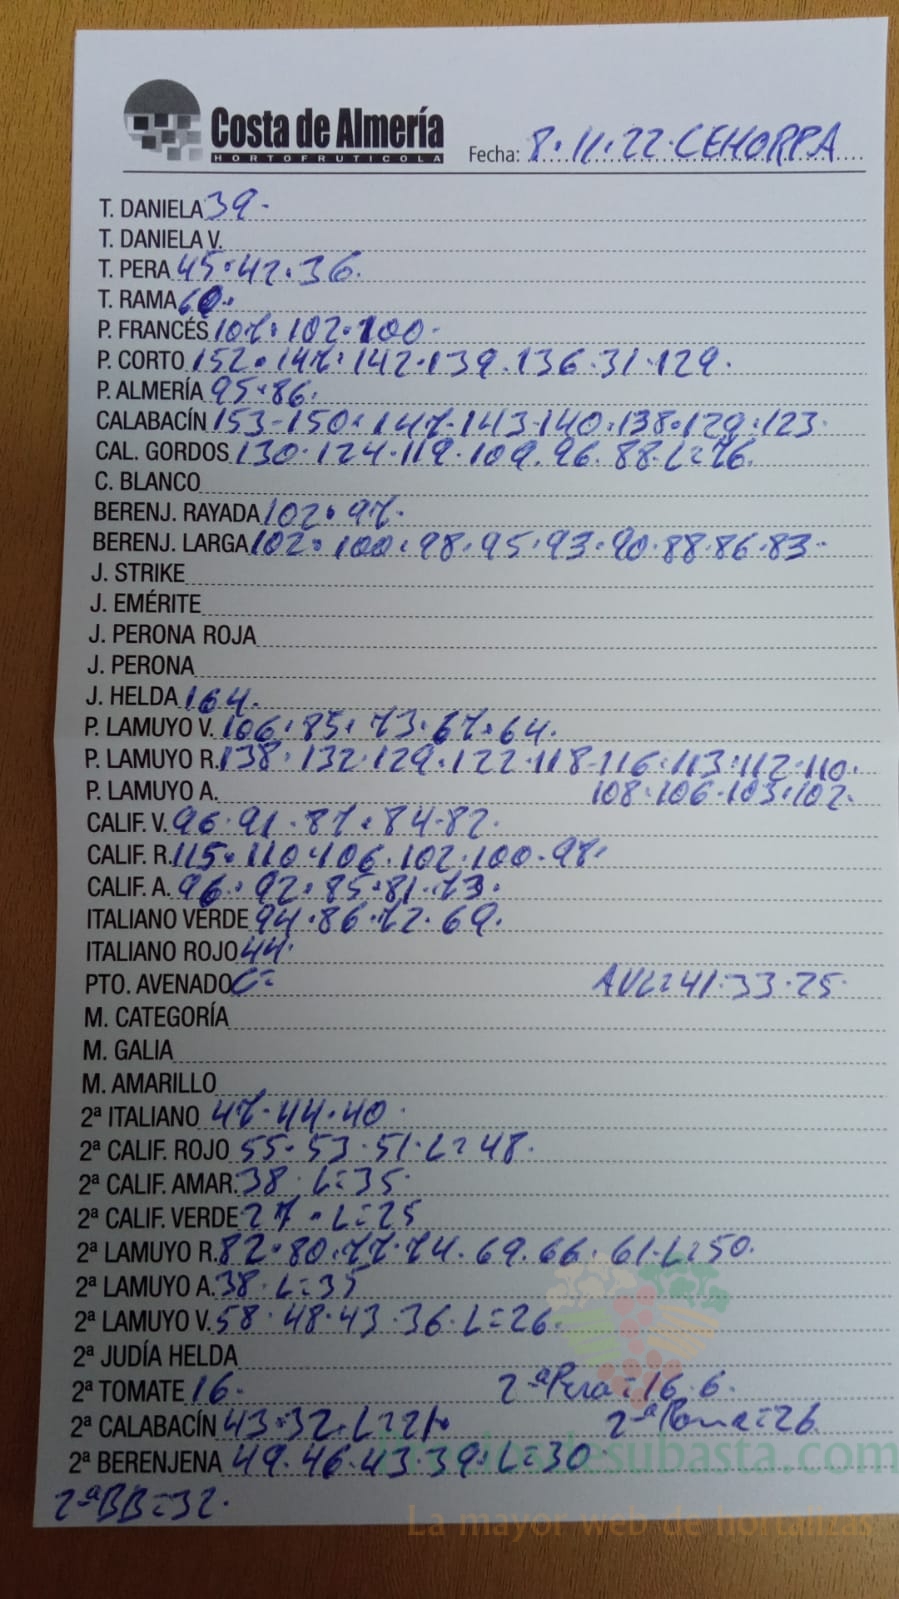 Costa de Almería
HORTOFRUTICOLA
Fecha: 8.11.22.CEHORPA
T. DANIELA 39.
T. DANIELA V.
T. PERA 45.42.36.
T. RAMA 60.
P. FRANCÉS 107.102.100.
P. CORTO 152.147.142.139.136.31.129.
P. ALMERÍA 95.86.
CALABACÍN 153-150.147.143.140.138.129.123.
CAL. GORDOS 130.124.119.109.96.88.L=76.
C. BLANCO
BERENJ. RAYADA 102.97.
BERENJ. LARGA 102.100.98.95.93.90.88.86.83.
J. STRIKE
J. EMÉRITE
J. PERONA ROJA
J. PERONA
J. HELDA 164.
P. LAMUYO V. 106.85.73.67.64.
P. LAMUYO R. 138.132.129.122.118-116.113.112.110.
P. LAMUYO A. 108.106.103.102.
CALIF. V. 96.91.87.84.82.
CALIF. R. 115.110.106.102.100.98.
CALIF. A. 96.92.85.81.73.
ITALIANO VERDE 94.86.72.69.
ITALIANO ROJO 44.
PTO. AVENADO C= AVL=41.33.25.
M. CATEGORÍA
M. GALIA
M. AMARILLO
2ª ITALIANO 47.44.40.
2ª CALIF. ROJO 55.53.51.L=48.
2ª CALIF. AMAR. 38.L=35.
2ª CALIF. VERDE 27.L=25
2ª LAMUYO R. 82.80.77.74.69.66.61.L=50.
2ª LAMUYO A. 38.L=35
2ª LAMUYO V. 58.48.43.36.L=26.
2ª JUDÍA HELDA
2ª TOMATE 16. 2ªPera=16.6.
2ª CALABACÍN 43.32.L=21. 2ªRama=26.
2ª BERENJENA 49.46.43.39.L=30
desubasta.com
2ªBB=32.
La mayor web de hortalizas